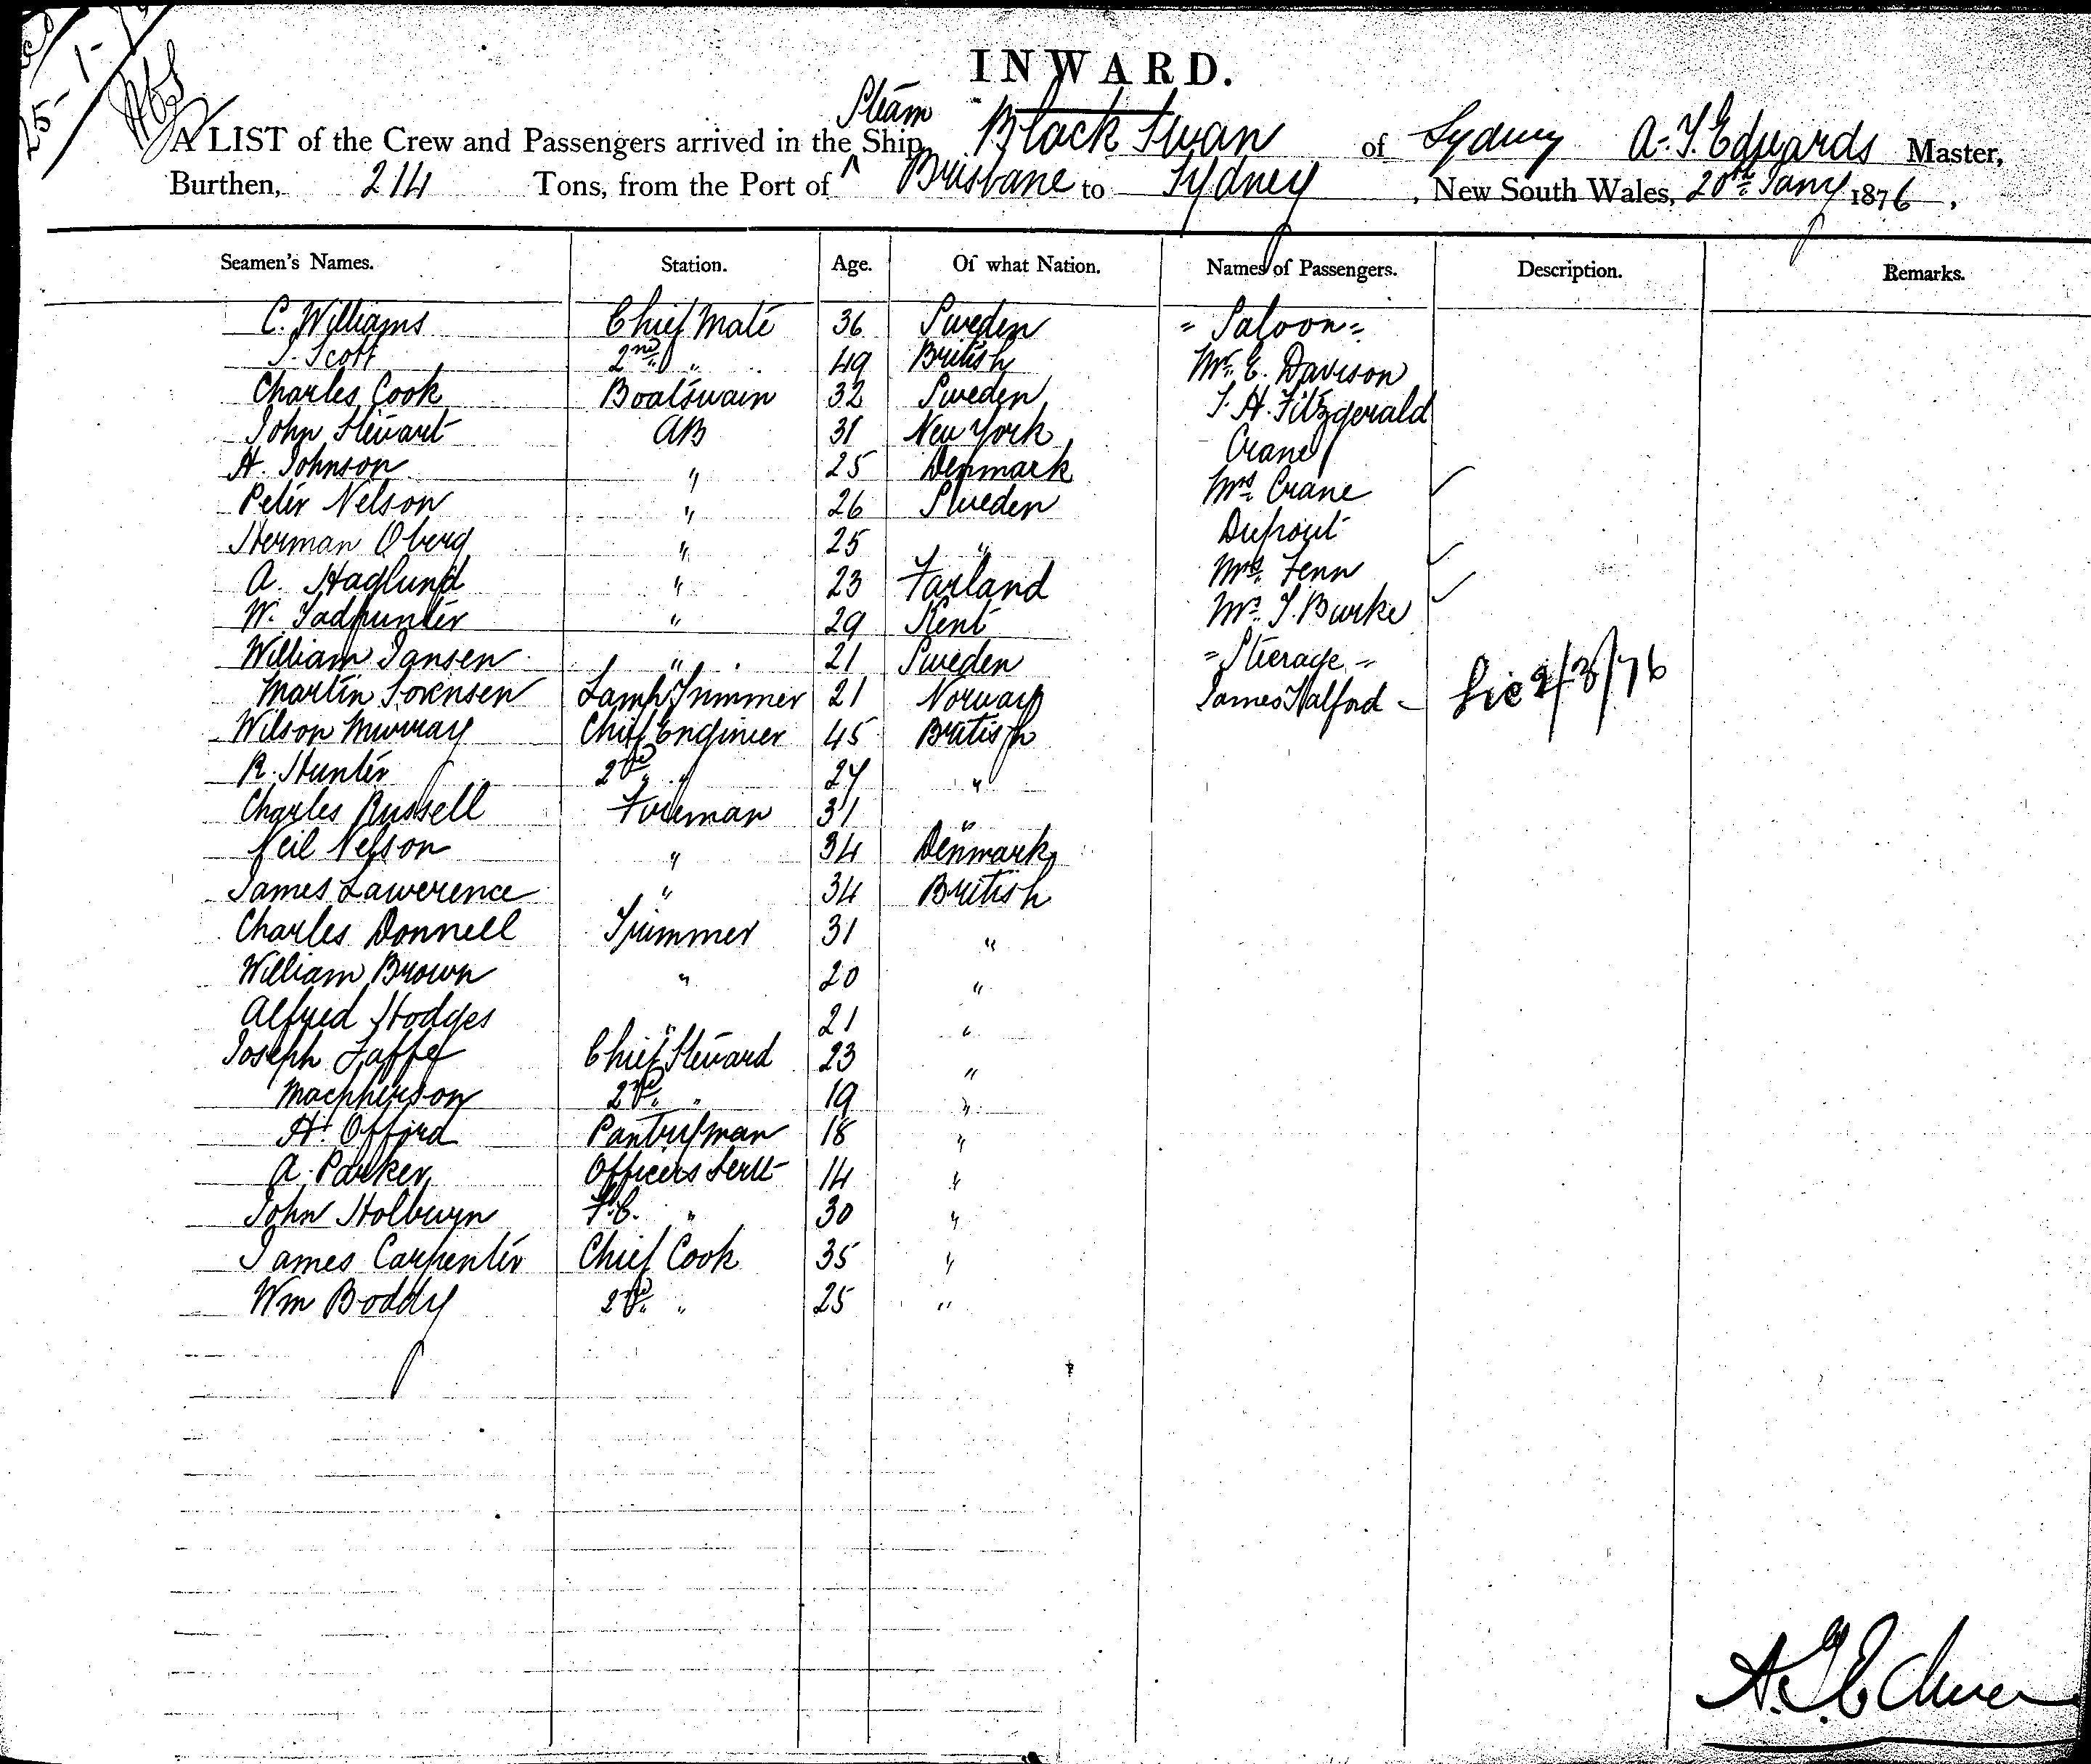 25-1-
INWARD.
Steam
A LIST of the Crew and Passengers arrived in the Ship Black Swan of Sydney A. T. Edwards Master,
Burthen, 214 Tons, from the Port of Brisbane to Sydney, New South Wales, 20th Jany 1876,
Seamen's Names. Station. Age. Of what Nation. Names of Passengers. Description. Remarks.
C. Williams Chief Mate 36 Sweden = Saloon =
J. Scott 2nd " 49 British Mr. E. Davison
Charles Cook Boatswain 32 Sweden T. H. Fitzgerald
John Stewart AB 31 New York Crane
H. Johnson " 25 Denmark Mrs Crane
Peter Nelson " 26 Sweden
Herman Oberg " 25 "
A. Haglund " 23 Farland Mrs. Fenn
W. Tadhunter " 29 Kent Mr. J. Burke
William Jansen " 21 Sweden = Steerage =
Martin Sorensen Lamp Trimmer 21 Norway James Halford -
Wilson Murray Chief Engineer 45 British
R. Hunter 2nd " 27 "
Charles Russell Fireman 31 "
Neil Nelson " 34 Denmark
James Lawerence " 34 British
Charles Donnell Trimmer 31 "
William Brown " 20 "
Alfred Hodges " 21 "
Joseph Jaffe Chief Steward 23 "
Macpherson 2nd " 19 "
H. Offord Pantryman 18 "
A. Parker Officers Servt 14 "
John Holbwyn F.C. " 30 "
James Carpenter Chief Cook 35 "
Wm Boddy 2nd " 25 "